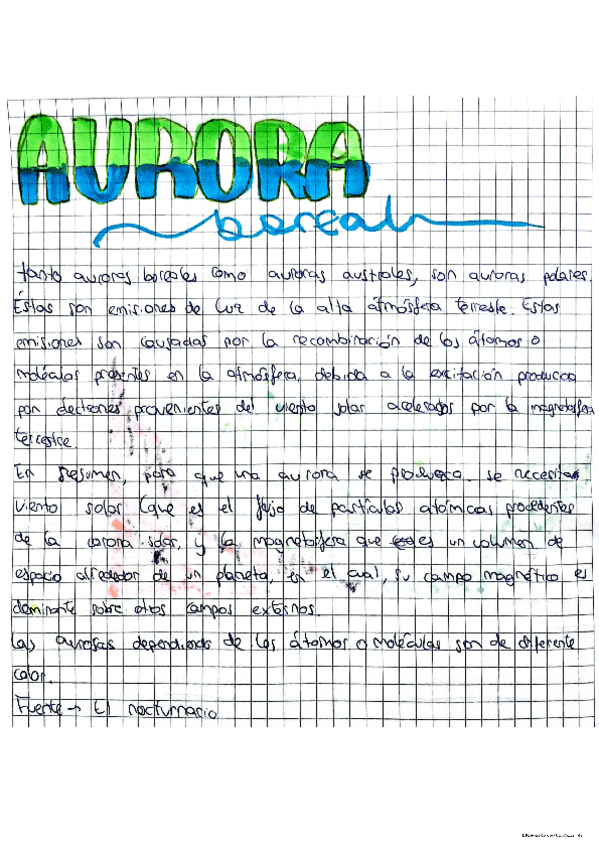 AURORA
boreal
tanto auroras boreales como auroras australes, son auroras polares.
Éstas son emisiones de luz de la alta átmósfera terreste. Estas
emisiones son causadas por la recombinación de los átomos o
moléculas presentes en la atmósfera, debida a la excitación producida
por electrones provenientes del viento solar acelerados por la magnetosfera
terrestre.
En resumen, para que una aurora se produzca se necesitas
viento solar (que es el flujo de partículas atómicas procedentes
de la corona solar, y la magnetosfera que es un volumen de
espacio alrededor de un planeta, en el cual, su campo magnético es
dominante sobre otros campos externos.
Las auroras dependiendo de los átomos o moléculas son de diferente
color.
Fuente → El nocturnario